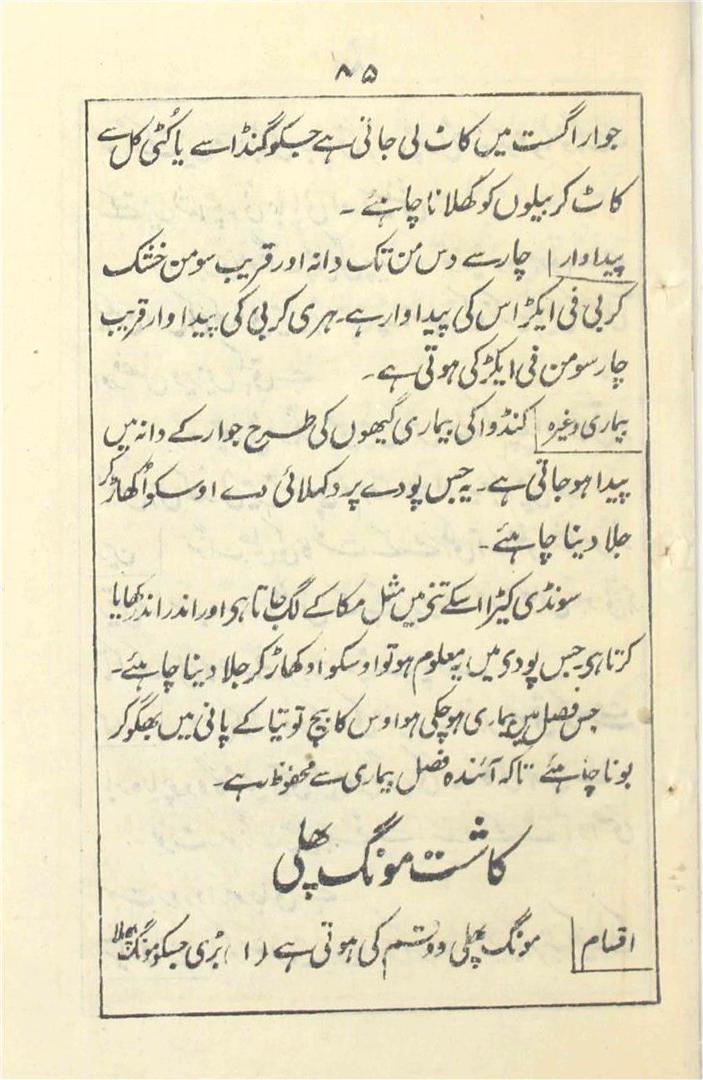 ۸۵
جوار اگست میں کاٹ لی جاتی ہے جسکو گنڈاسے یا کُٹی کل سے
کاٹ کر بیلوں کو کھلانا چاہئے ۔
پیداوار چار سے دس من تک دانہ اور قریب سو من خشک
کربی فی ایکڑ اس کی پیداوار ہے۔ ہری کربی کی پیداوار قریب
چار سو من فی ایکڑ کی ہوتی ہے۔
بیماری وغیرہ کنڈوا کی بیماری گیہوں کی طرح جوار کے دانہ میں
پیدا ہوجاتی ہے۔ یہ جس پودے پر دکھلائی دے اوسکو اُکھاڑ کر
جلا دینا چاہئے۔
سونڈی کیڑا اسکے تنہ میں مثل مکا کے لگ جاتا ہی اور اندر اندر کھایا
کرتا ہی۔ جس پودی میں یہ معلوم ہو تو اوسکو اوکھاڑ کر جلا دینا چاہئے۔
جس فصل میں بیماری ہوچکی ہو اوس کا بیج توتیا کے پانی میں بھگو کر
بونا چاہئے تاکہ آئندہ فصل بیماری سے محفوظ رہے۔
کاشت مونگ پھلی
اقسام مونگ پھلی دو قسم کی ہوتی ہے (۱) بڑی جسکو مونگ پھلا